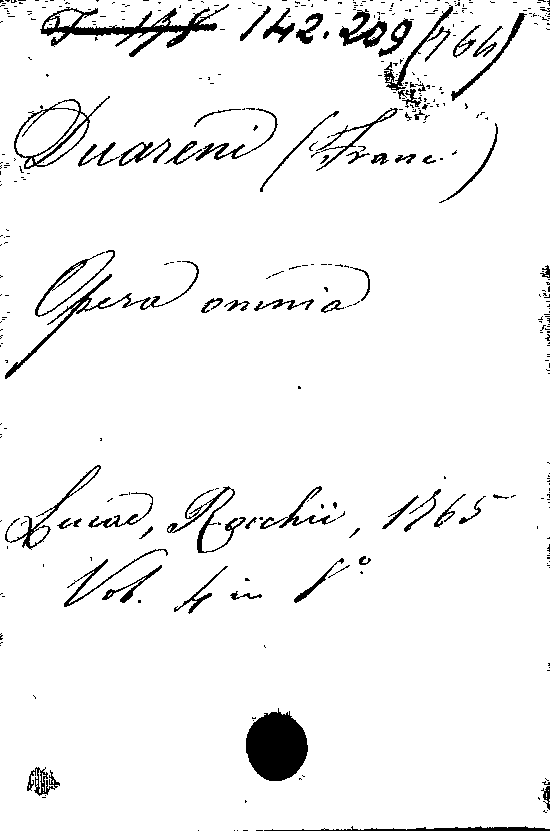 142.209 (764)
Duareni (Franc.)
Opera omnia
Lucae, Rocchii, 1765
Vol. 4 in 8º